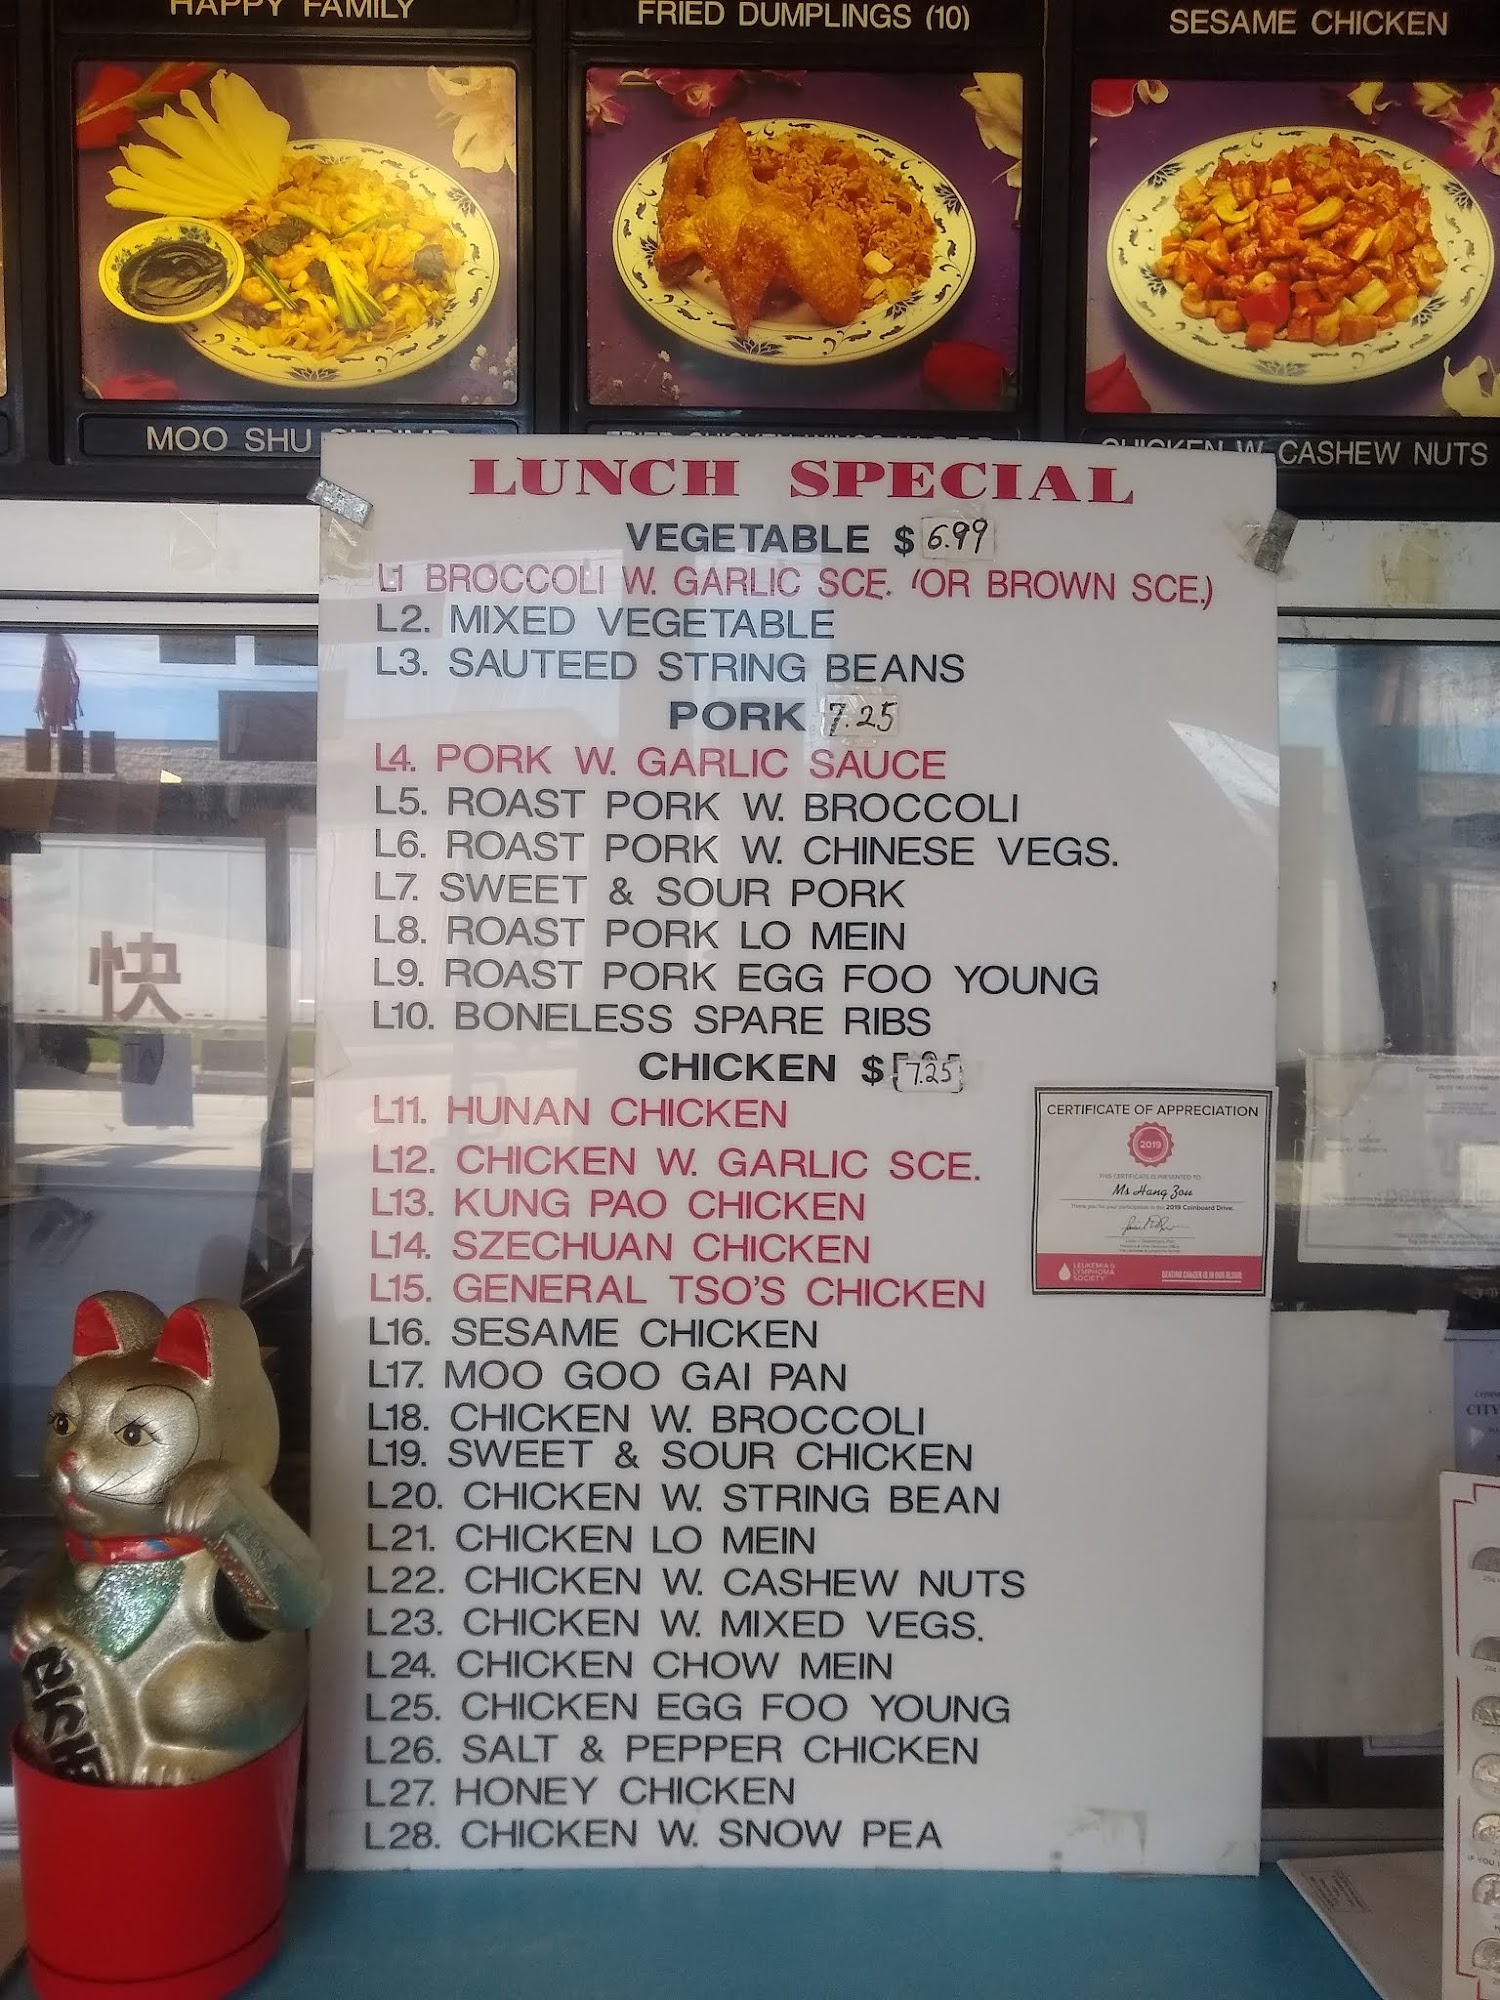 HAPPY FAMILY
FRIED DUMPLINGS (10)
SESAME CHICKEN
MOO SHU SHRIMP
CHICKEN W. CASHEW NUTS
LUNCH SPECIAL
VEGETABLE $ 6.99
L1 BROCCOLI W. GARLIC SCE. (OR BROWN SCE.)
L2. MIXED VEGETABLE
L3. SAUTEED STRING BEANS
PORK 7.25
L4. PORK W. GARLIC SAUCE
L5. ROAST PORK W. BROCCOLI
L6. ROAST PORK W. CHINESE VEGS.
L7. SWEET & SOUR PORK
L8. ROAST PORK LO MEIN
L9. ROAST PORK EGG FOO YOUNG
L10. BONELESS SPARE RIBS
CHICKEN $ 7.25
L11. HUNAN CHICKEN
L12. CHICKEN W. GARLIC SCE.
L13. KUNG PAO CHICKEN
L14. SZECHUAN CHICKEN
L15. GENERAL TSO'S CHICKEN
L16. SESAME CHICKEN
L17. MOO GOO GAI PAN
L18. CHICKEN W. BROCCOLI
L19. SWEET & SOUR CHICKEN
L20. CHICKEN W. STRING BEAN
L21. CHICKEN LO MEIN
L22. CHICKEN W. CASHEW NUTS
L23. CHICKEN W. MIXED VEGS.
L24. CHICKEN CHOW MEIN
L25. CHICKEN EGG FOO YOUNG
L26. SALT & PEPPER CHICKEN
L27. HONEY CHICKEN
L28. CHICKEN W. SNOW PEA
CERTIFICATE OF APPRECIATION
2019
THIS CERTIFICATE IS PRESENTED TO
Ms Hang Zou
Thank you for your participation in the 2019 Coinboard Drive.
LEUKEMIA &
LYMPHOMA
SOCIETY
BEATING CANCER IS IN OUR BLOOD.
快